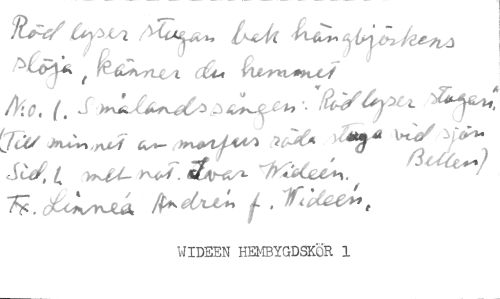 Röd lyser stugan bak hängbjörkens
slöja, känner du hemmet
N:o. 1. Smålandssången: "Röd lyser stugan".
(Till minnet av morfars röda stuga vid sjön
Bellen)
Sid. 1 mel. not. Ivar Wideén.
Tx. Linnéa Andrén f. Wideén.
WIDEEN HEMBYGDSKÖR 1